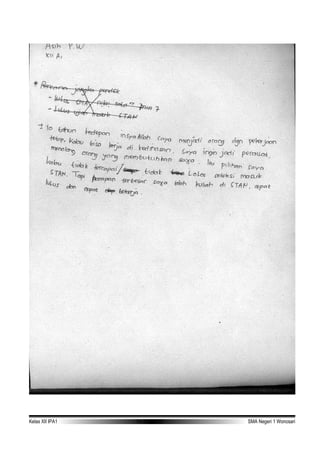 Asih P.W
XII A1
* Rencana jangka pendek
- Lulus
- Lulus STAN
10 tahun kedepan insyaAllah saya menjadi orang dgn pekerjaan
tetap, kalau bisa kerja di kedinasan. Saya ingin jadi perawat,
menolong orang yang membutuhkan saya. Itu pilihan saya
kalau tidak tercapai / tidak Lolos seleksi masuk
STAN. Tapi harapan terbesar saya ialah kuliah di STAN, cepat
lulus dan cepat bekerja.
Kelas XII IPA1
SMA Negeri 1 Wonosari